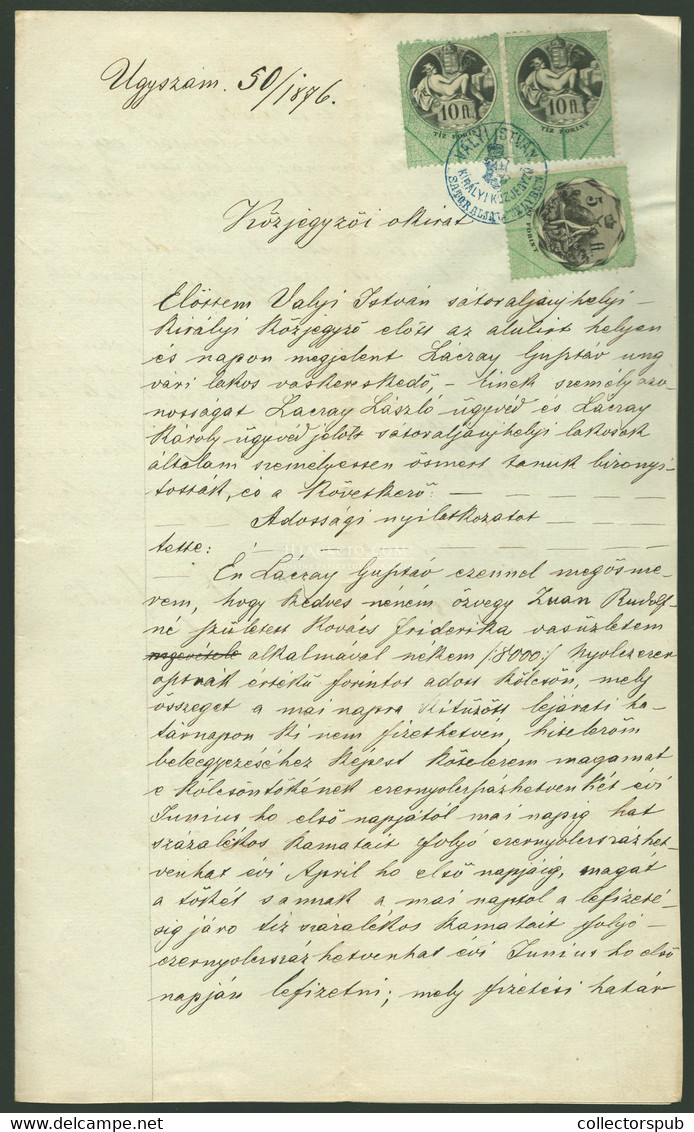 Ügyszám. 50/1876.
10 ft.
TIZ FORINT
10 ft.
TIZ FORINT
VÁLYI ISTVÁN
KIRÁLYI KÖZJEGYZŐ
5 ft.
FORINT
Közjegyzői okirat
Előttem Valyi István sátoraljaujhelyi
királyi közjegyző előtt az alulirt helyen
és napon megjelent Láczay Gusztáv ung
vári lakos vaskereskedő, – kinek személyazo
nosságát Laczay László ügyvéd és Láczay
Károly ügyvédjelölt sátoraljaujhelyi lakosok
általam személyessen ösmert tanuk bizonyi-
tották, és a következő: —
Adossági nyilatkozatot
tette:
Én Láczay Gusztáv ezennel megösme-
rem, hogy kedves néném özvegy Zuan Rudolf-
né született Kovács Friderika vasüzletem
alkalmával nékem /:8000:/ nyolczezer
osztrák értékü forintot adott kölcsön, mely
összeget a mai napra kitüzött lejárati ha-
tárnapon ki nem fizethetvén, hitelezőm
beleegyezéséhez képest kötelezem magamat
e kölcsöntőkének ezernyolczszázhetvenkét évi
Junius ho első napjától mai napig hat
százalékos kamatait folyó ezernyolczszázhet-
venhat évi April ho első napjáig, magát
a tőkét s annak a mai naptol a lefizeté-
sig járo tiz százalékos kamatait folyó
ezernyolczszázhetvenhat évi Junius ho első
napján lefizetni; mely fizetési határ
collectorspub